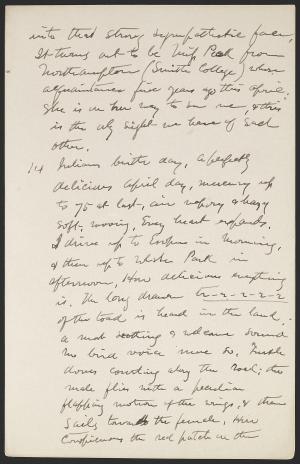 into that strong sympathetic face,
It turns out to be Miss Peck from
Northampton (Smith College) whose
acquaintance five years ago this April.
She is on her way to see me, & this
is the only sight we have of each
other.
14 Julians birth day, A perfectly
delicious April day, mercury up
to 75 at last, air vapory & hazy
soft, wooing, Every heart expands.
I drive up to in morning,
& then up to Park in
afternoon, How delicious everything
is. The long drawn tr-r-r-r-r-r
of the toad is heard in the land;
a most soothing & welcome sound
no bird voice more so, Turtle
doves courting along the road; the
male flies with a peculiar
flapping motion of the wings, & then
sails toward the female, How
Conspicuous the red patch on the